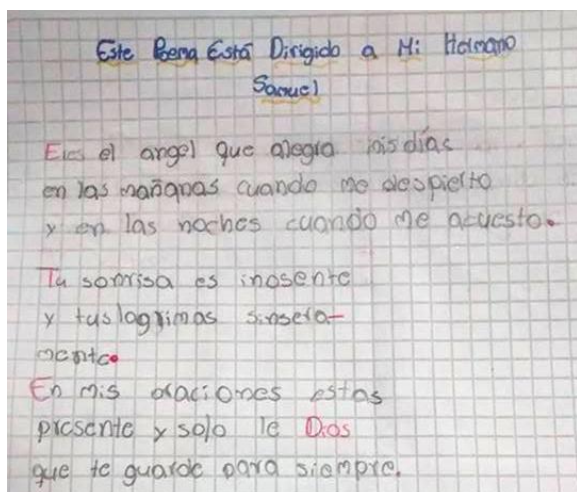 Este Poema Está Dirigido a Mi Hermano
Samuel
Eres el angel que alegra mis días
en las mañanas cuando me despierto
y en las noches cuando me acuesto.
Tu sonrisa es inosente
y tus lagrimas sinsera-
mente.
En mis oraciones estas
presente y solo le Dios
que te guarde para siempre.